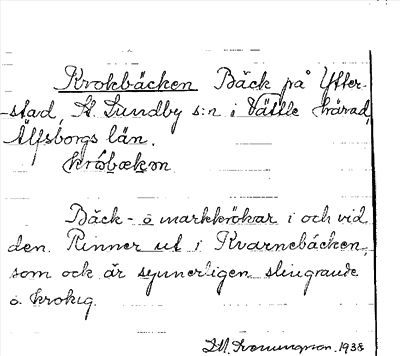 Krokbäcken Bäck på Ytter-
stad, St. Lundby s:n i Vättle härad,
Älfsborgs län.
kròbækən
Bäck - o markkrökar i och vid
den. Rinner ut i Kvarnebäcken,
som ock är synnerligen slingrande
o. krokig.
1938